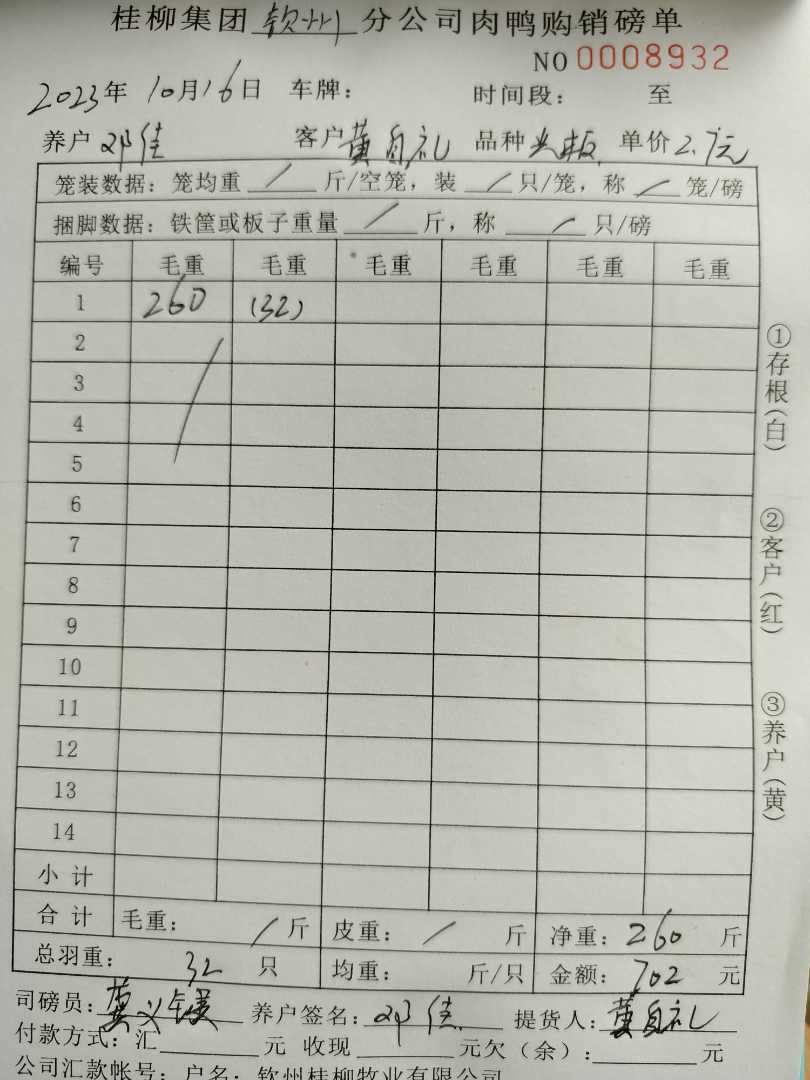 桂柳集团钦州分公司肉鸭购销磅单
NO 0008932
2023年10月16日 车牌: 时间段: 至
养户 邓佳 客户 黄自礼 品种 光板 单价 2.7元
笼装数据: 笼均重 / 斤/空笼, 装 / 只/笼, 称 / 笼/磅
捆脚数据: 铁筐或板子重量 / 斤, 称 / 只/磅
编号 毛重 毛重 毛重 毛重 毛重 毛重
1 260 (32)
2
3
4
5
6
7
8
9
10
11
12
13
14
小计
合计 毛重: / 斤 皮重: / 斤 净重: 260 斤
总羽重: 32 只 均重: 斤/只 金额: 702 元
司磅员: 黄 养户签名: 邓佳 提货人: 黄自礼
付款方式: 汇 元 收现 元欠(余): 元
公司汇款帐号: 户名: 钦州桂柳牧业有限公司
①存根(白)
②客户(红)
③养户(黄)